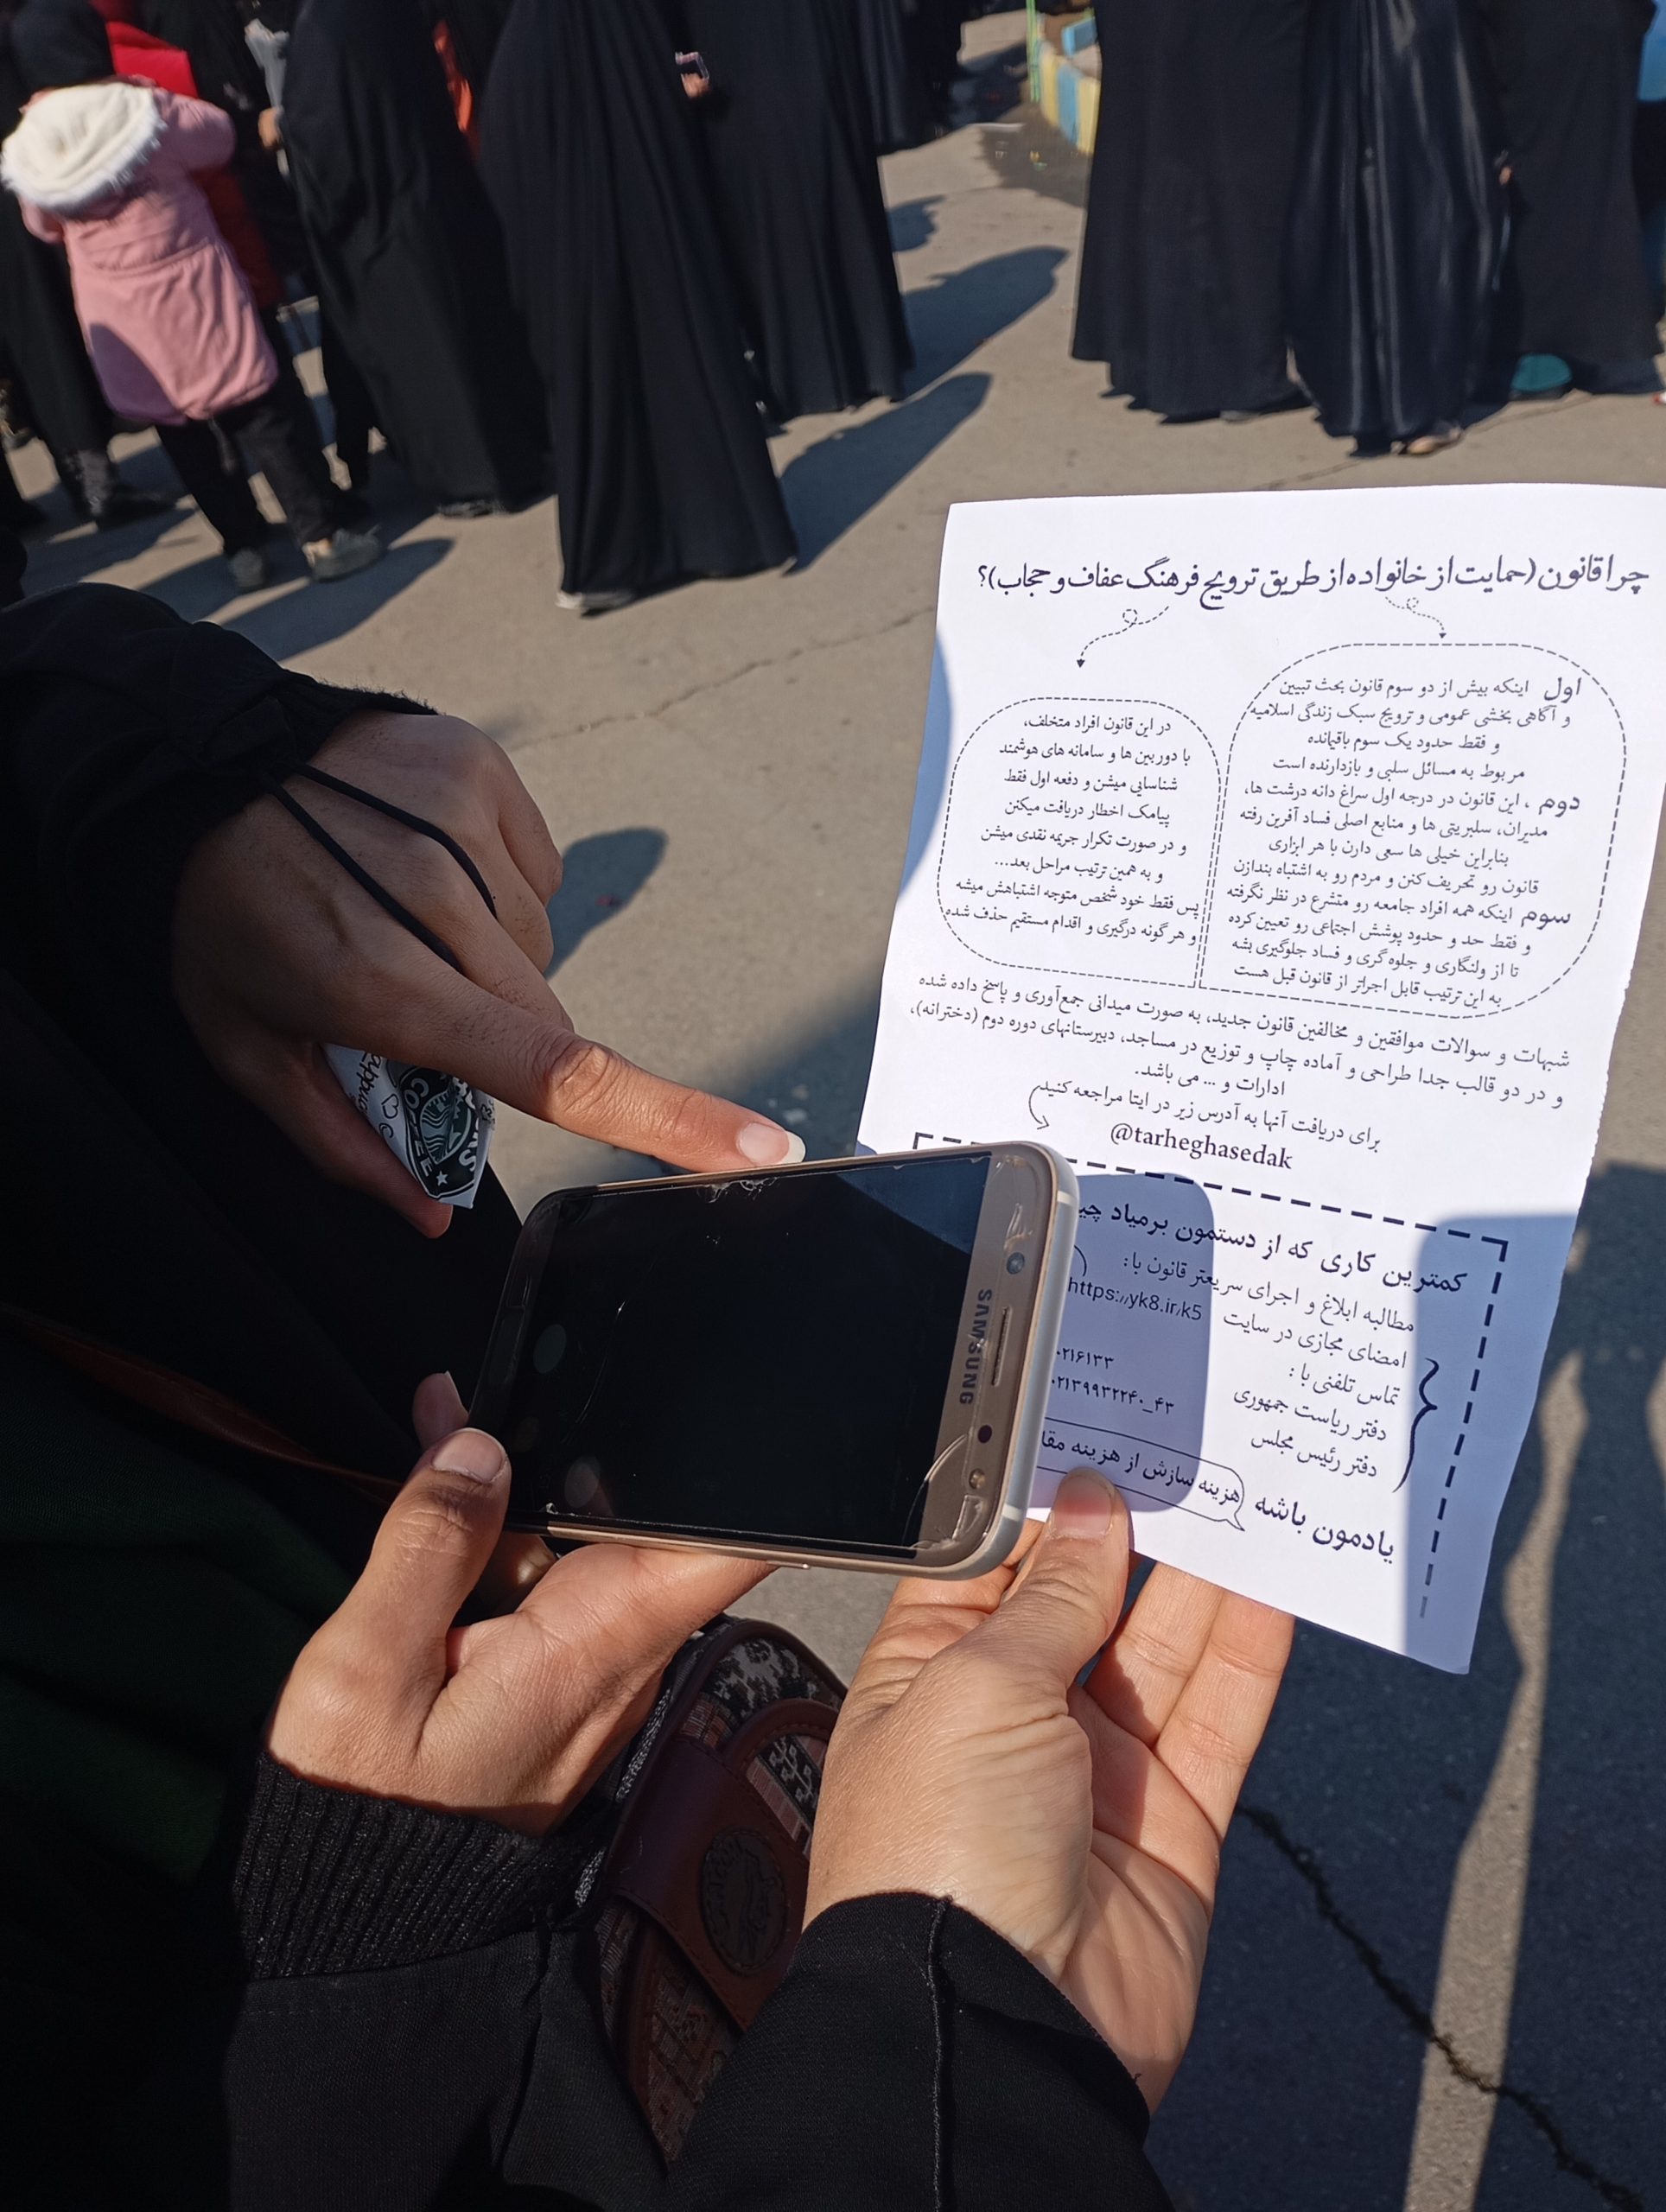 چرا قانون (حمایت از خانواده از طریق ترویج فرهنگ عفاف و حجاب)؟
اول اینکه بیش از دو سوم قانون بحث تبیین
و آگاهی بخشی عمومی و ترویج سبک زندگی اسلامیه
و فقط حدود یک سوم باقیمانده
مربوط به مسائل سلبی و بازدارنده است
دوم ، این قانون در درجه اول سراغ دانه درشت ها،
مدیران، سلبریتی ها و منابع اصلی فساد آفرین رفته
بنابراین خیلی ها سعی دارن با هر ابزاری
قانون رو تحریف کنن و مردم رو به اشتباه بندازن
سوم اینکه همه افراد جامعه رو متشرع در نظر نگرفته
و فقط حد و حدود پوشش اجتماعی رو تعیین کرده
تا از ولنگاری و جلوه گری و فساد جلوگیری بشه
به این ترتیب قابل اجراتر از قانون قبل هست
در این قانون افراد متخلف،
با دوربین ها و سامانه های هوشمند
شناسایی میشن و دفعه اول فقط
پیامک اخطار دریافت میکنن
و در صورت تکرار جریمه نقدی میشن
و به همین ترتیب مراحل بعد...
پس فقط خود شخص متوجه اشتباهش میشه
و هر گونه درگیری و اقدام مستقیم حذف شده
شبهات و سوالات موافقین و مخالفین قانون جدید، به صورت میدانی جمع‌آوری و پاسخ داده شده
و در دو قالب جدا طراحی و آماده چاپ و توزیع در مساجد، دبیرستانهای دوره دوم (دخترانه)،
ادارات و ... می باشد.
برای دریافت آنها به آدرس زیر در ایتا مراجعه کنید
@tarheghasedak
کمترین کاری که از دستمون برمیاد
مطالبه ابلاغ و اجرای سریعتر قانون با:
امضای مجازی در سایت https://yk8.ir/k5
تماس تلفنی با :
دفتر ریاست جمهوری ۰۲۱۶۱۳۳
دفتر رئیس مجلس ۰۲۱۳۹۹۳۲۲۴۰_۴۳
یادمون باشه هزینه سازش از هزینه
SAMSUNG
COFFEE